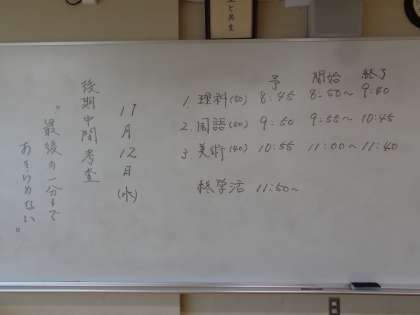 後期中間考査
11月12日(水)
"最後の一分まで
あきらめない"
予 開始 終了
1. 理科(50) 8:45 8:50〜9:40
2. 国語(50) 9:50 9:55〜10:45
3. 美術(40) 10:55 11:00〜11:40
終学活 11:50〜